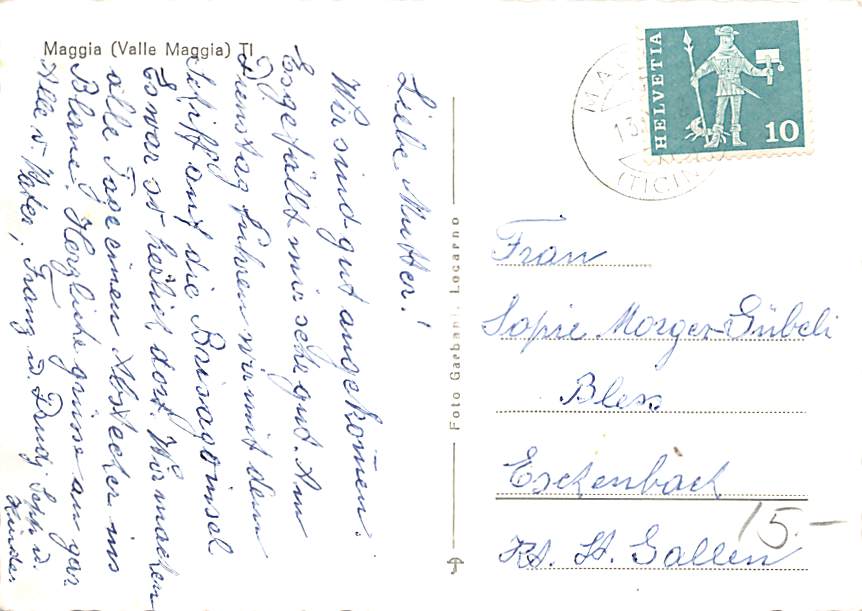 Maggia (Valle Maggia) TI
Liebe Mutter!
Wir sind gut angekom̄en.
Es gefällt mir sehr gut. Am
Dienstag fuhren wir mit dem
Schiff auf die Brisagoinsel
Es war so herlich dort. Wir machen
alle Tage einen Abstecher ins
Blaue. Herzliche grüsse an gar
Alle v. Vater, Franz u. Trudj Sepp u.
Kinder
Foto Garbani, Locarno
HELVETIA
10
MA
13
(TICIN
Frau
Sopie Morger-Gübeli
Bless
Eschenbach
Kt. St. Gallen
15.-